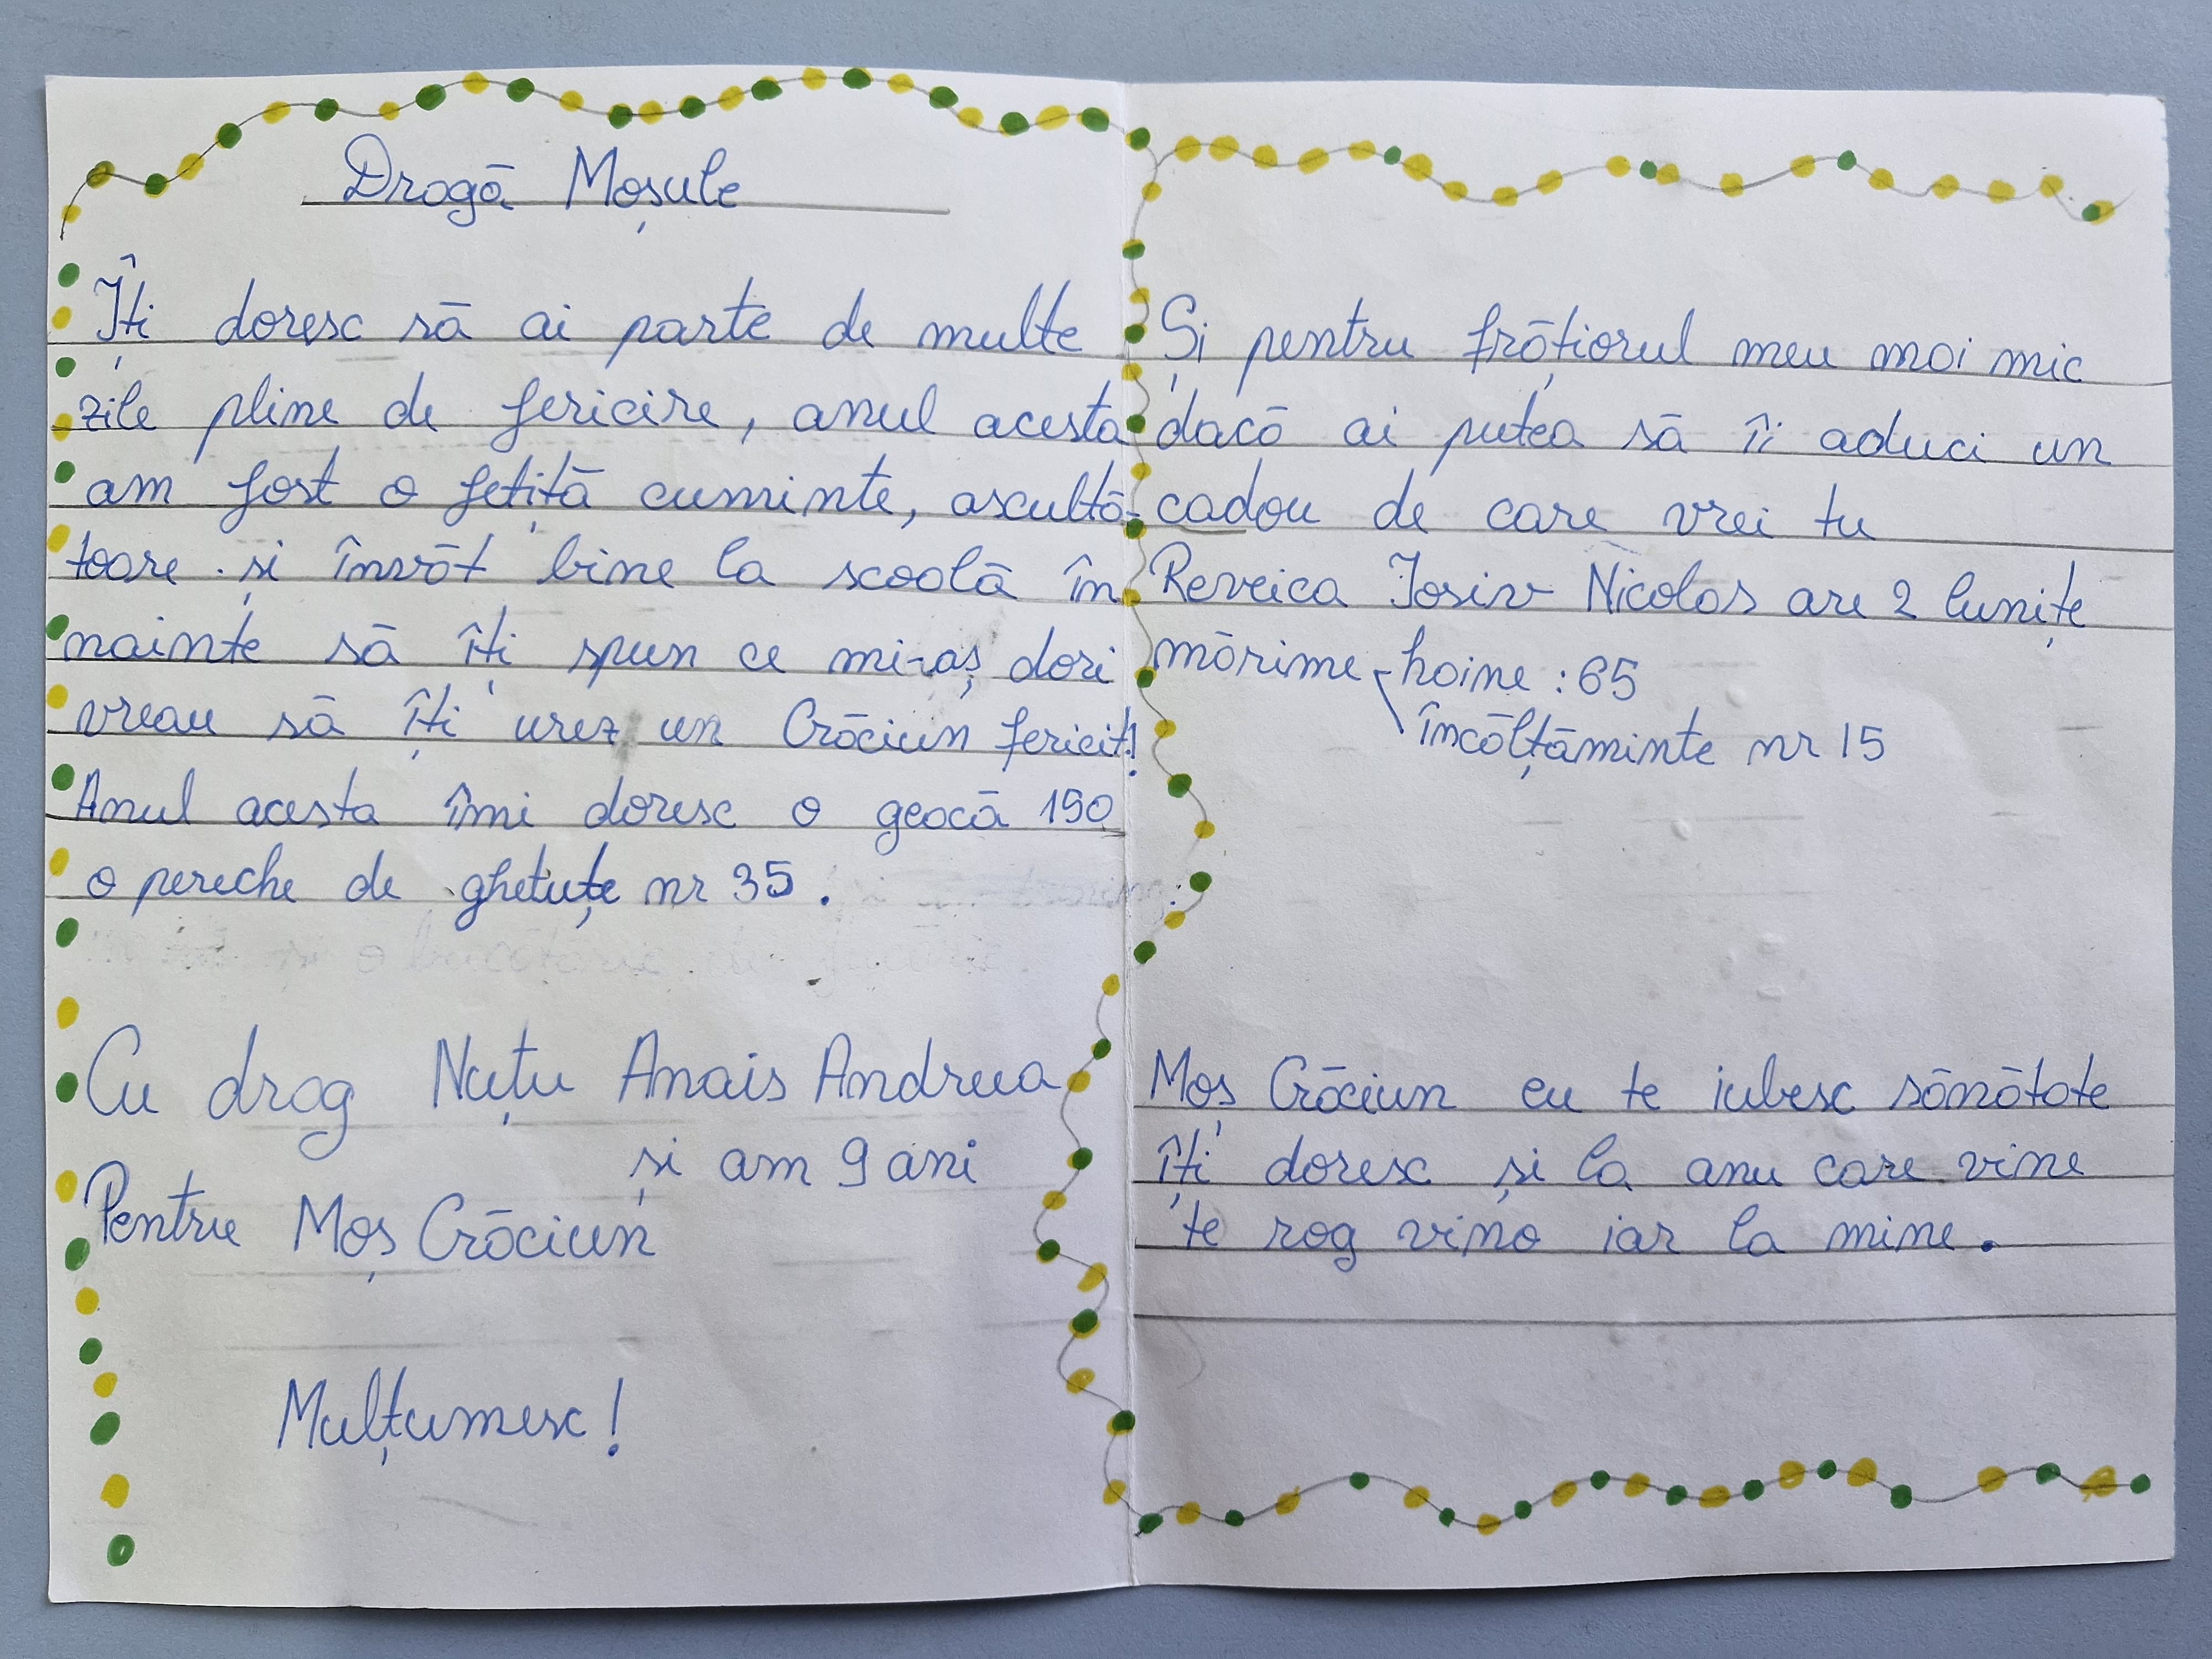 Dragă Moșule
Îți doresc să ai parte de multe
zile pline de fericire, anul acesta
am fost o fetiță cuminte, ascultă-
toare și învăț bine la scoală în
nainte să îți spun ce mi-aș dori
vreau să îți urez un Crăciun fericit!
Anul acesta îmi doresc o geacă 150
o pereche de ghetuțe nr 35.
Cu drag Nuțu Anais Andreea
și am 9 ani
Pentru Moș Crăciun
Mulțumesc!
Și pentru frățiorul meu mai mic
dacă ai putea să îi aduci un
cadou de care vrei tu
Reveica Iosiv Nicolas are 2 lunițe
mărime haine : 65
încălțăminte nr 15
Moș Crăciun eu te iubesc sănătate
îți doresc și la anu care vine
te rog vino iar la mine.